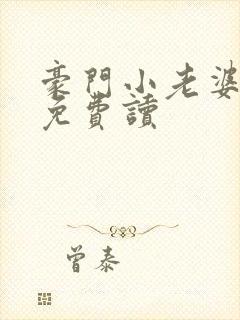 豪門小老婆
免費讀
曾泰